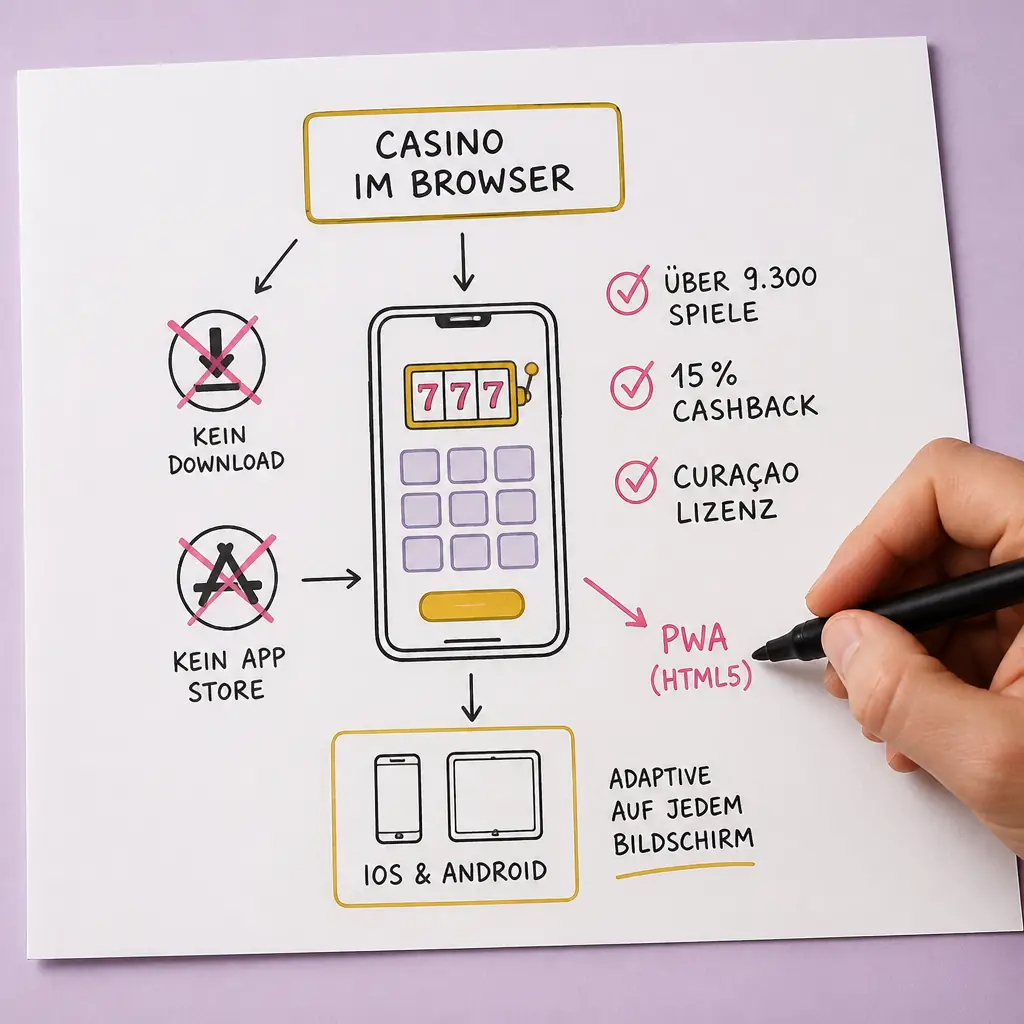 CASINO
IM BROWSER
KEIN
DOWNLOAD
KEIN APP
STORE
777
ÜBER 9.300
SPIELE
15 %
CASHBACK
CURAÇAO
LIZENZ
PWA
(HTML5)
IOS & ANDROID
ADAPTIVE
AUF JEDEM
BILDSCHIRM